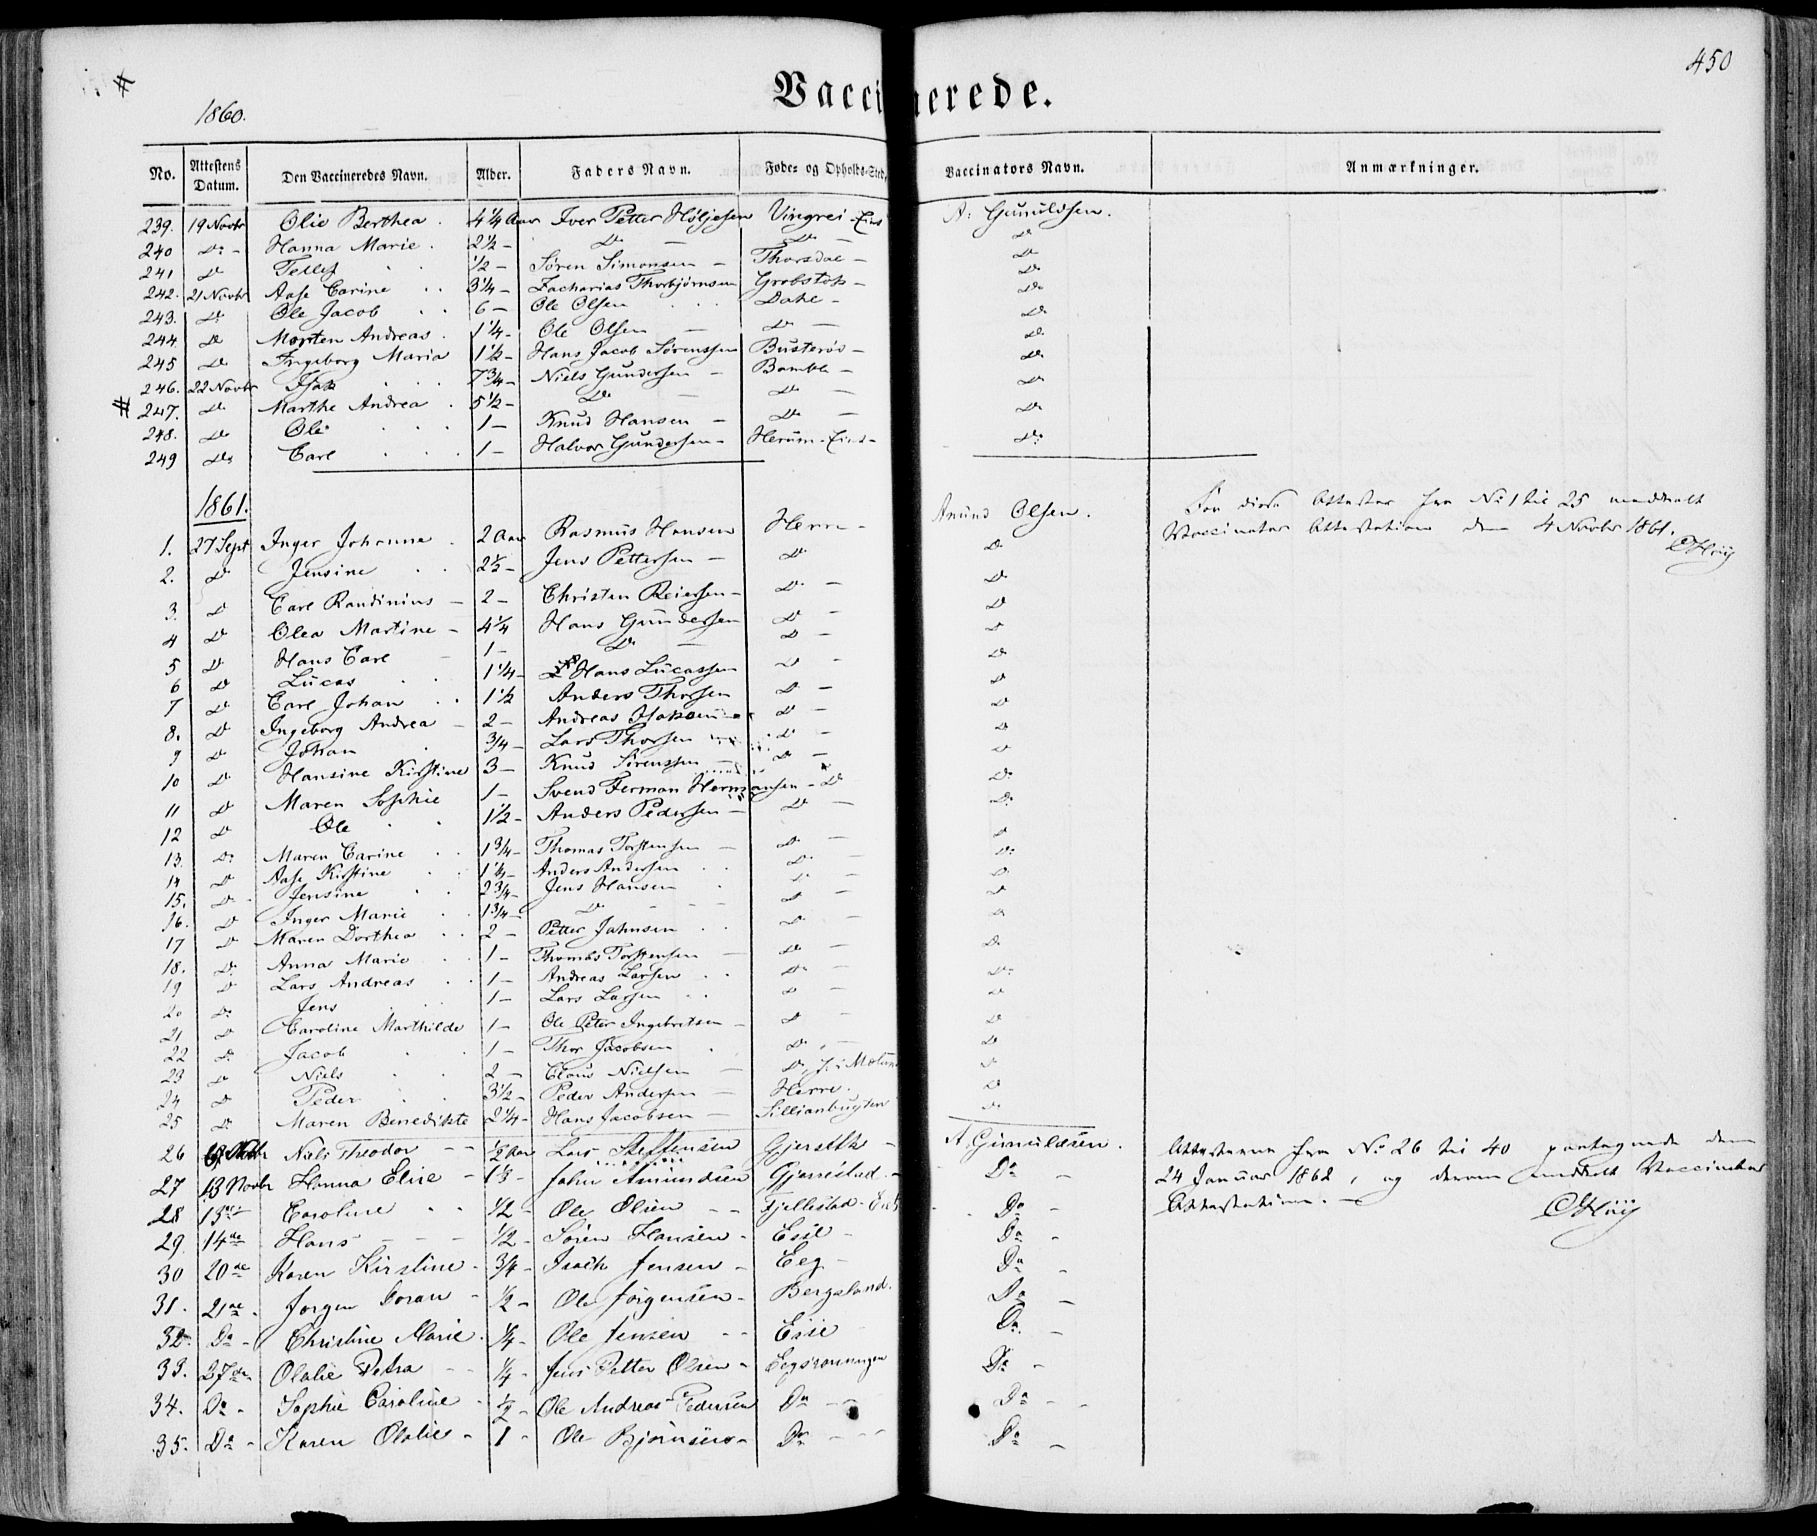 450
Vaccinerede.
1860.
No. Attestens Datum. Den Vaccineredes Navn. Alder. Faders Navn. Føde- og Opholds-Sted. Vaccinators Navn. Anmærkninger.
239. 19 Novbr Olie Berthea. 4 1/4 Aar Iver Petter Høljesen Vingrei - Eies A: Gunuldsen.
240 Do - Hanna Marie. 2 1/2 - Do - Do - Do
241 Do Tellef 1/2 - Søren Simonsen - Thorsdal - Do
242. 21 Novbr Aase Carine 3 1/4 - Zacharias Thorbjørnsen Grobstok - Do
243. Do Ole Jacob 6 - Ole Olsen Dahl - Do
244 Do Morten Andreas. 1 1/4 - Ole Olsen - Do - Do
245 Do Ingeborg Maria 1 1/2 - Hans Jacob Sørenssen Busterøs - Do
246. 22 Novbr Isak 7 3/4 - Niels Gundersen - Bamble - Do
# 247. Do Marthe Andrea. 5 1/2 - Do - Do - Do
248. Do Ole 1 - Knud Hansen - Do - Do
249 Do Carl 1 - Halvor Gundersen - Herum - Eies - Do
1861.
1. 27 Sept Inger Johanne. 2 Aar Rasmus Hansen Herre - Amund Olsen. For disse Attester fra No 1 til 25 meddelt
Vaccinator Attestation den 4 Novbr 1861.
2. Do Jensine 2 1/2 - Jens Pettersen - Do Do
3. Do Carl Randinius - 2 - Christen Reiersen - Do - Do
4 Do Olea Martine - 4 1/4 Hans Gundersen Do Do
5 Do Hans Carl 1 - Do - Do - Do
6 Do Lucas 1 1/4 - Hans Lucassen Do - Do
7 Do Carl Johan 1 1/2 Anders Thorsen Do - Do
8. Do Ingeborg Andrea - 2 - Andreas Isaksen Do - Do
9 Do Johan 3/4 - Lars Thorsen Do - Do
10 Do Hansine Kirstine 3 - Knud Sørenssen - Do - Do
11 Do Maren Sophie 1 - Svend Ferman Hermansen - Do Do
12 Do Ole 1 1/2 - Anders Pedersen - Do - Do
13. Do Maren Carine 1 3/4 - Thomas Torstensen - Do - Do
14 Do Aase Kirstine 1 1/2 - Anders Andersen Do - Do
15. Do Jensine 2 3/4 - Jens Hansen Do - Do
16. Do Inger Marie 1 3/4 - Do - Do - Do
17 Do Maren Dorthea 2 - Petter Jahnsen Do - Do
18. Do Anna Marie 1 - Thomas Torstensen - Do - Do
19 Do Lars Andreas 1 - Andreas Larsen Do - Do
20 Do Jens 1 - Lars Larsen Do - Do
21 Do Caroline Marthilde 1 - Ole Peter Ingebretsen - Do - Do
22 Do Jacob 1 - Thor Jacobsen Do - Do
23 Do Niels 2 - Claus Nielsen - Do Do
24 Do Peder 3 1/2 - Peder Andersen - Herre. Do
25 Do Maren Benedikte 2 1/4 - Hans Jacobsen - Sillianbugten Do
26 Niels Theodor - - 1/2 Aar Lars Steffensen Gjersekk - A. Gunuldsen. Attesterne fra No 26 til 40 paategnede den
27 13 Novbr Hanna Elise - 1 1/2 - John Amundsen Gjerrestad - Do - 24 Januar 1862, og derom meddelt Vaccinator
28 13de Caroline 1/2 - Ole Olsen - - Fjellestad - Eies Do - Attestation. -
29 14de Hans - - - 1/2 - Søren Hansen - Esse - Do -
30 20de Karen Kirstine - 3/4 - Isach Jensen - Eeg - Do -
31. 21de - Jørgen Goran - 1/2 - Ole Jørgensen - Bergsland. Do -
32 - Do - Christine Marie. 1/4 - Ole Jensen - - Esse - Do. -
33. 27de - Olalie Petra - - 1/4 - Jens Petter Olsen - Eegsvoningen Do -
34. Do - Sophie Caroline - 1/2 - Ole Andreas Pedersen Do - - Do - -
35. Do - Karen Olalie - 1 - Ole Bjørnsen - Do - - - Do -